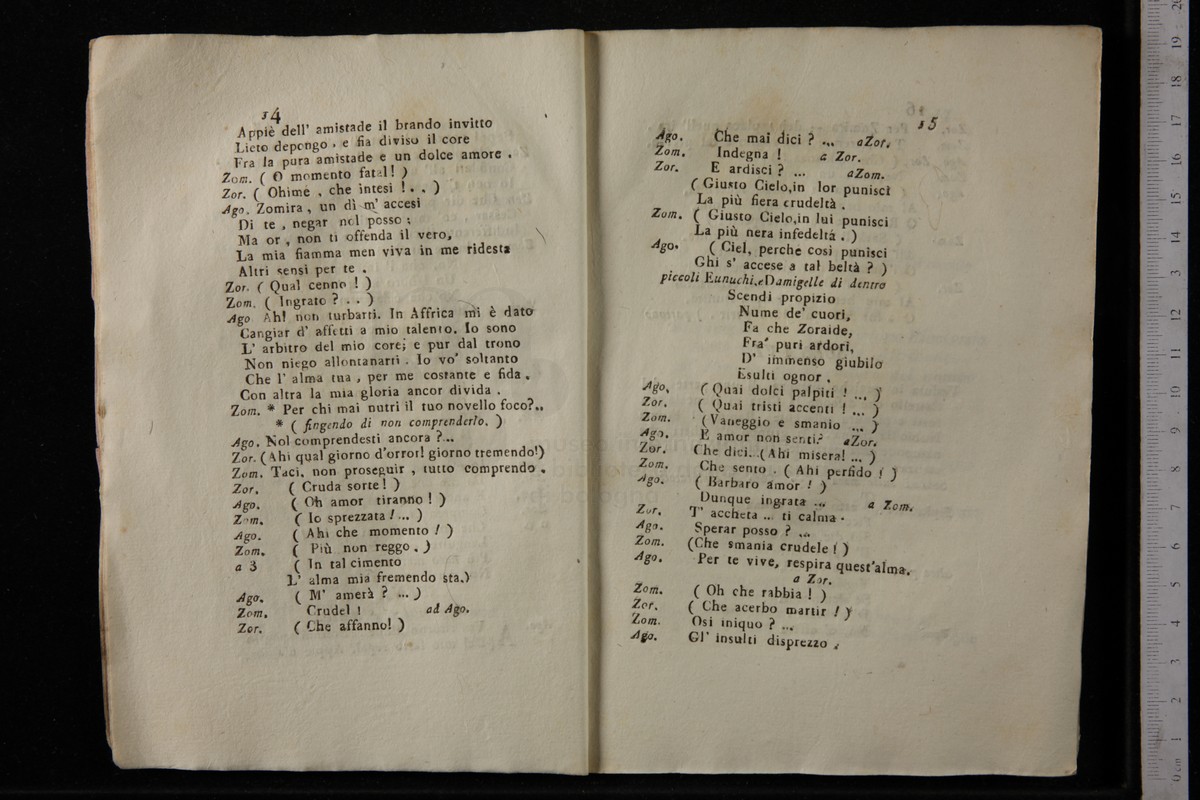 14
Appiè dell' amistade il brando invitto
Lieto depongo, e fia diviso il core
Fra la pura amistade e un dolce amore.
Zom. ( O momento fatal! )
Zor. ( Ohimè, che intesi ! . . )
Ago. Zomira, un dì m' accesi
Di te, negar nol posso:
Ma or, non ti offenda il vero,
La mia fiamma men viva in me ridesta
Altri sensi per te.
Zor. ( Qual cenno ! )
Zom. ( Ingrato ? . . )
Ago. Ah! non turbarti. In Affrica mi è dato
Cangiar d' affetti a mio talento. Io sono
L' arbitro del mio core; e pur dal trono
Non niego allontanarti. Io vo' soltanto
Che l' alma tua, per me costante e fida,
Con altra la mia gloria ancor divida.
Zom. * Per chi mai nutri il tuo novello foco?..
* ( fingendo di non comprenderlo. )
Ago. Nol comprendesti ancora ?...
Zor. (Ahi qual giorno d'orror! giorno tremendo!)
Zom. Taci, non proseguir, tutto comprendo.
Zor. ( Cruda sorte! )
Ago. ( Oh amor tiranno! )
Zom. ( Io sprezzata! ... )
Ago. ( Ahi che momento! )
Zom. ( Più non reggo. )
a 3 ( In tal cimento
L' alma mia fremendo sta.)
Ago. ( M' amerà ? ... )
Zom. Crudel ! ad Ago.
Zor. ( Che affanno! )
15
Ago. Che mai dici ? ... a Zor.
Zom. Indegna ! a Zor.
Zor. E ardisci ? ... a Zom.
( Giusto Cielo, in lor punisci
La più fiera crudeltà.
Zom. ( Giusto Cielo, in lui punisci
La più nera infedeltà. )
Ago. ( Ciel, perchè così punisci
Ghi s' accese a tal beltà ? )
piccoli Eunuchi, e Damigelle di dentro
Scendi propizio
Nume de' cuori,
Fa che Zoraide,
Fra' puri ardori,
D' immenso giubilo
Esulti ognor.
Ago. ( Quai dolci palpiti ! ... )
Zor. ( Quai tristi accenti ! ... )
Zom. ( Vaneggio e smanio ... )
Ago. E amor non senti? a Zor.
Zor. Che dici...( Ahi misera! ... )
Zom. Che sento. ( Ahi perfido ! )
Ago. ( Barbaro amor ! )
Dunque ingrata ... a Zom.
Zor. T' accheta ... ti calma.
Ago. Sperar posso ? ...
Zom. (Che smania crudele! )
Ago. Per te vive, respira quest'alma.
a Zor.
Zom. ( Oh che rabbia ! )
Zor. ( Che acerbo martir ! )
Zom. Osi iniquo ? ...
Ago. Gl' insulti disprezzo.